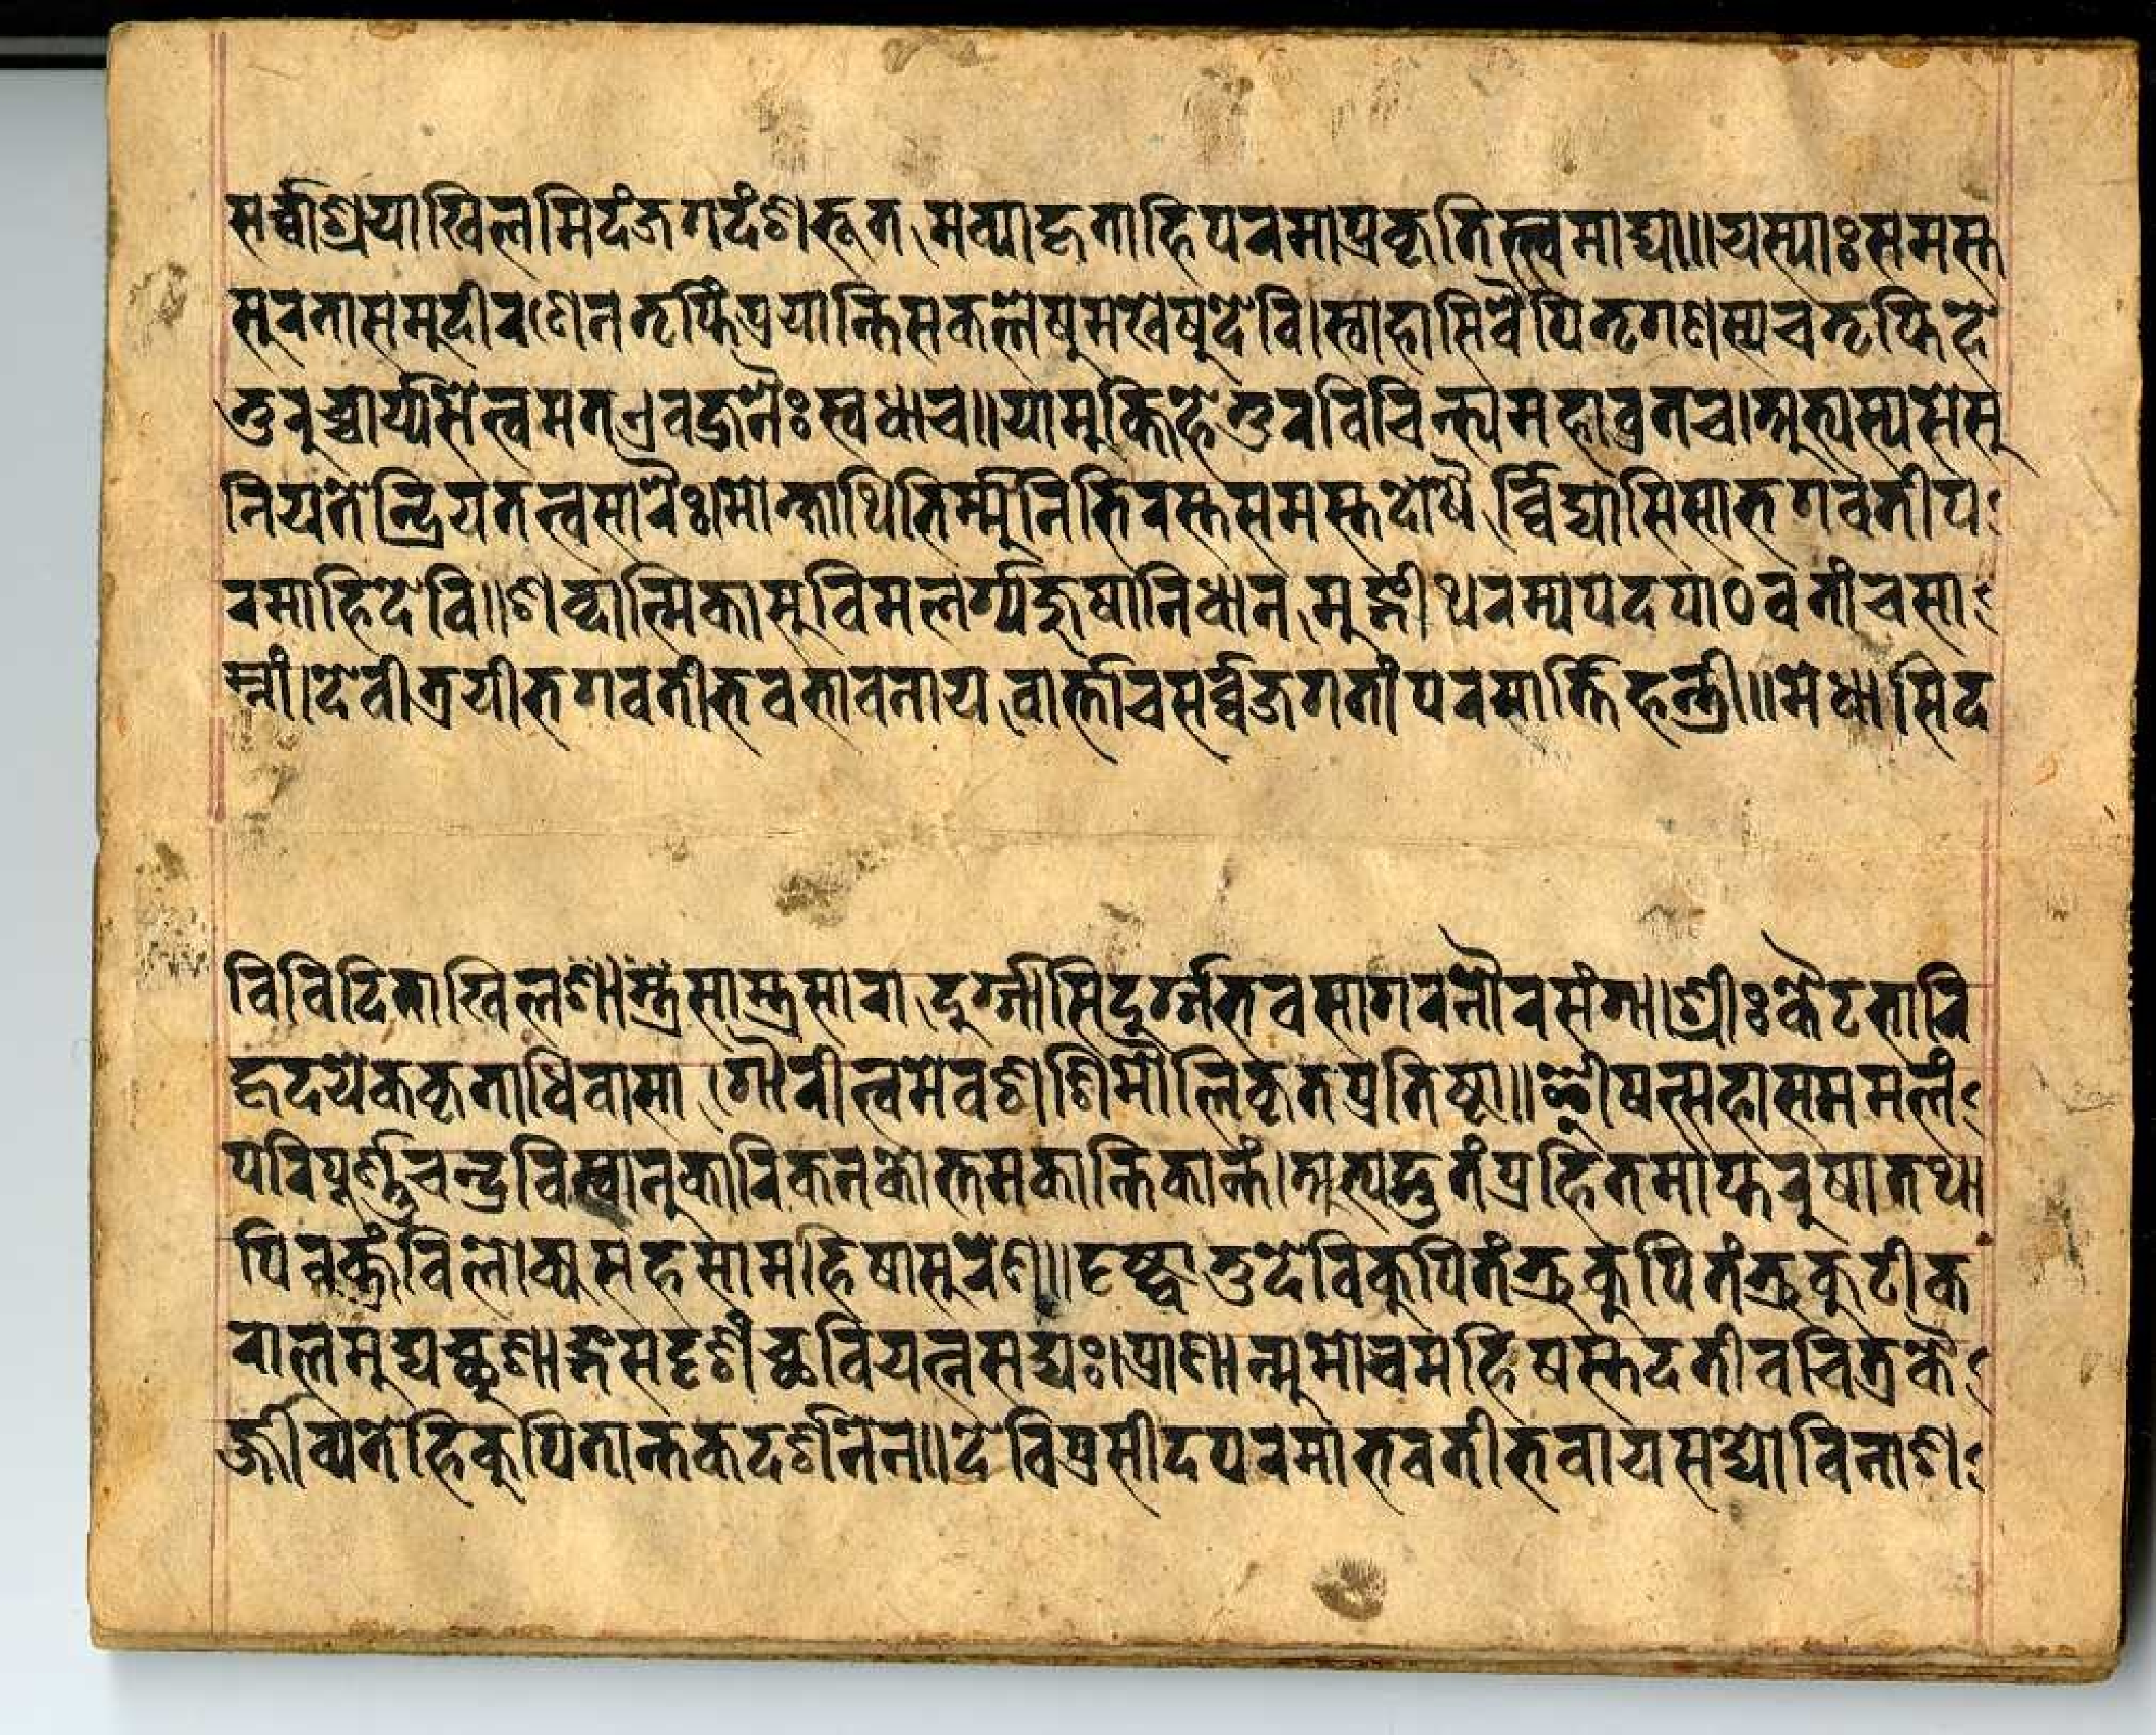 सर्व्वाश्रयाखिलमिदंजगदंशभूत मव्याहृताहिपरमाप्रकृतिस्त्वमाद्या॥यस्याःसमस्त
सुरतासमुदीरणेनतृप्तिंप्रयान्तिसकलेषुमखेषुदेवि।स्वाहासिवैपितृगणस्यचतृप्तिहे
तुरुच्चार्य्यसेत्वमतएवजनैःस्वधाच॥यामुक्तिहेतुरविचिन्त्यमहाव्रतच।अभ्यस्यसेसु
नियतेन्द्रियतत्त्वसारैः।मोक्षार्थिभिर्म्मुनिभिरस्तसमस्तदोषै र्व्विद्यासिसाभगवतीप
रमाहिदेवि॥शब्दात्मिकासुविमलर्ग्यजुषानिधान मुद्गीथरम्यपदपाठवतांचसा
म्नां।देवीत्रयीभगवतीभवभावनाय वार्त्ताचसर्व्वजगतांपरमार्त्तिहन्त्री॥मेधासिद
विविदिताखिलशास्त्रसास्त्रसारा दुर्ग्गासिदुर्ग्गभवसागरनौरसंगा॥श्रीःकैटभारि
हृदयेककृताधिवासा गौरीत्वमेवशशिमौलिकृतप्रतिष्ठा॥ईषत्सहासममलं
परिपूर्ण्णचन्द्रविम्बानुकारिकनकोत्तमकान्तिकान्तं।अत्यद्भुतंप्रहितमाप्तरुषातथा
पिवक्त्रंविलोक्यसहसामहिषासुरेण॥दृष्ट्वातुदेविकुपितंभ्रुकुपितंभ्रुकुटीक
रालमुद्यच्छशाङ्कसदृशंच्छवियत्नसद्यः।प्राणान्मुमोचमहिषस्तदतीवचित्रकै
र्ज्जीव्यतेहिकुपितान्तकदर्शनेन॥देविप्रसीदपरमाभवतीभवायसद्योविनाश